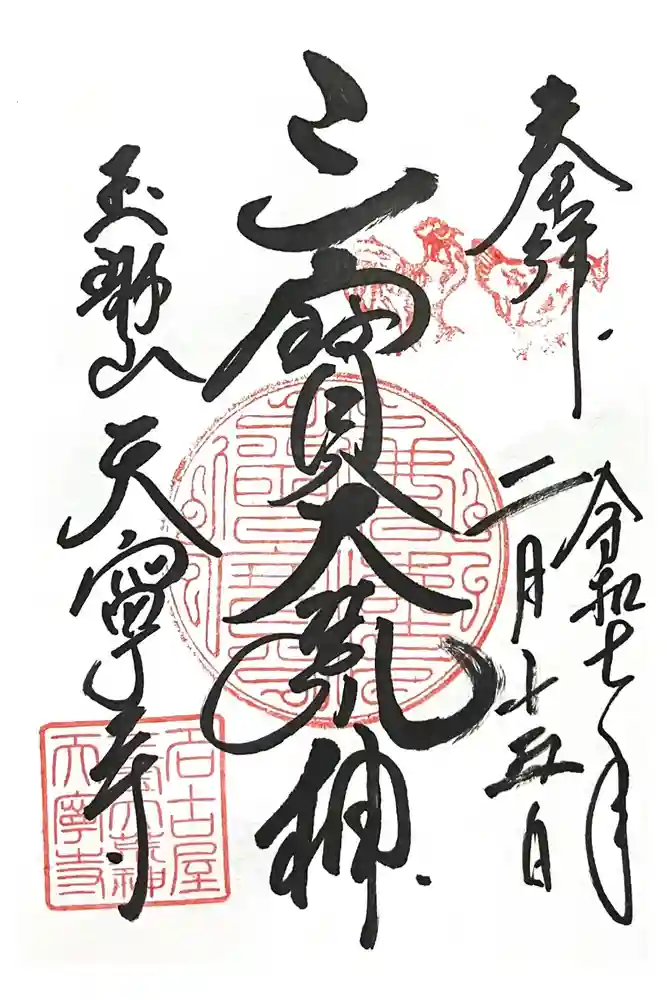 奉拝
令和七年
二月十五日
三寳大荒神
玉雲山天寧寺
名古屋
三寳大荒神
天寧寺